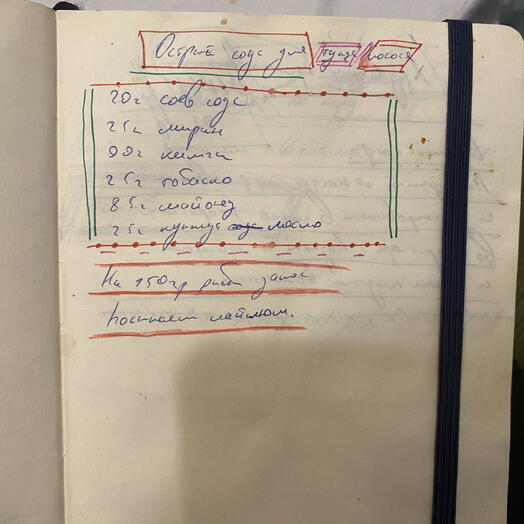 Острый соус для тунца лосося
20г соев соус
25г мирин
90г кимчи
25г тобаско
85г майонез
25г кунжут масло
На 150гр рыбы
лаймом.